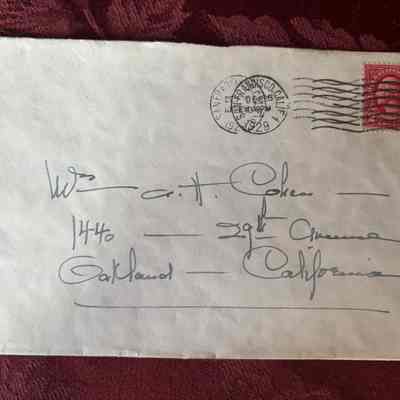 SAN FRANCISCO, CALIF. 1
1929
A. H. Cohen —
1440 — 29th Avenue
Oakland — California